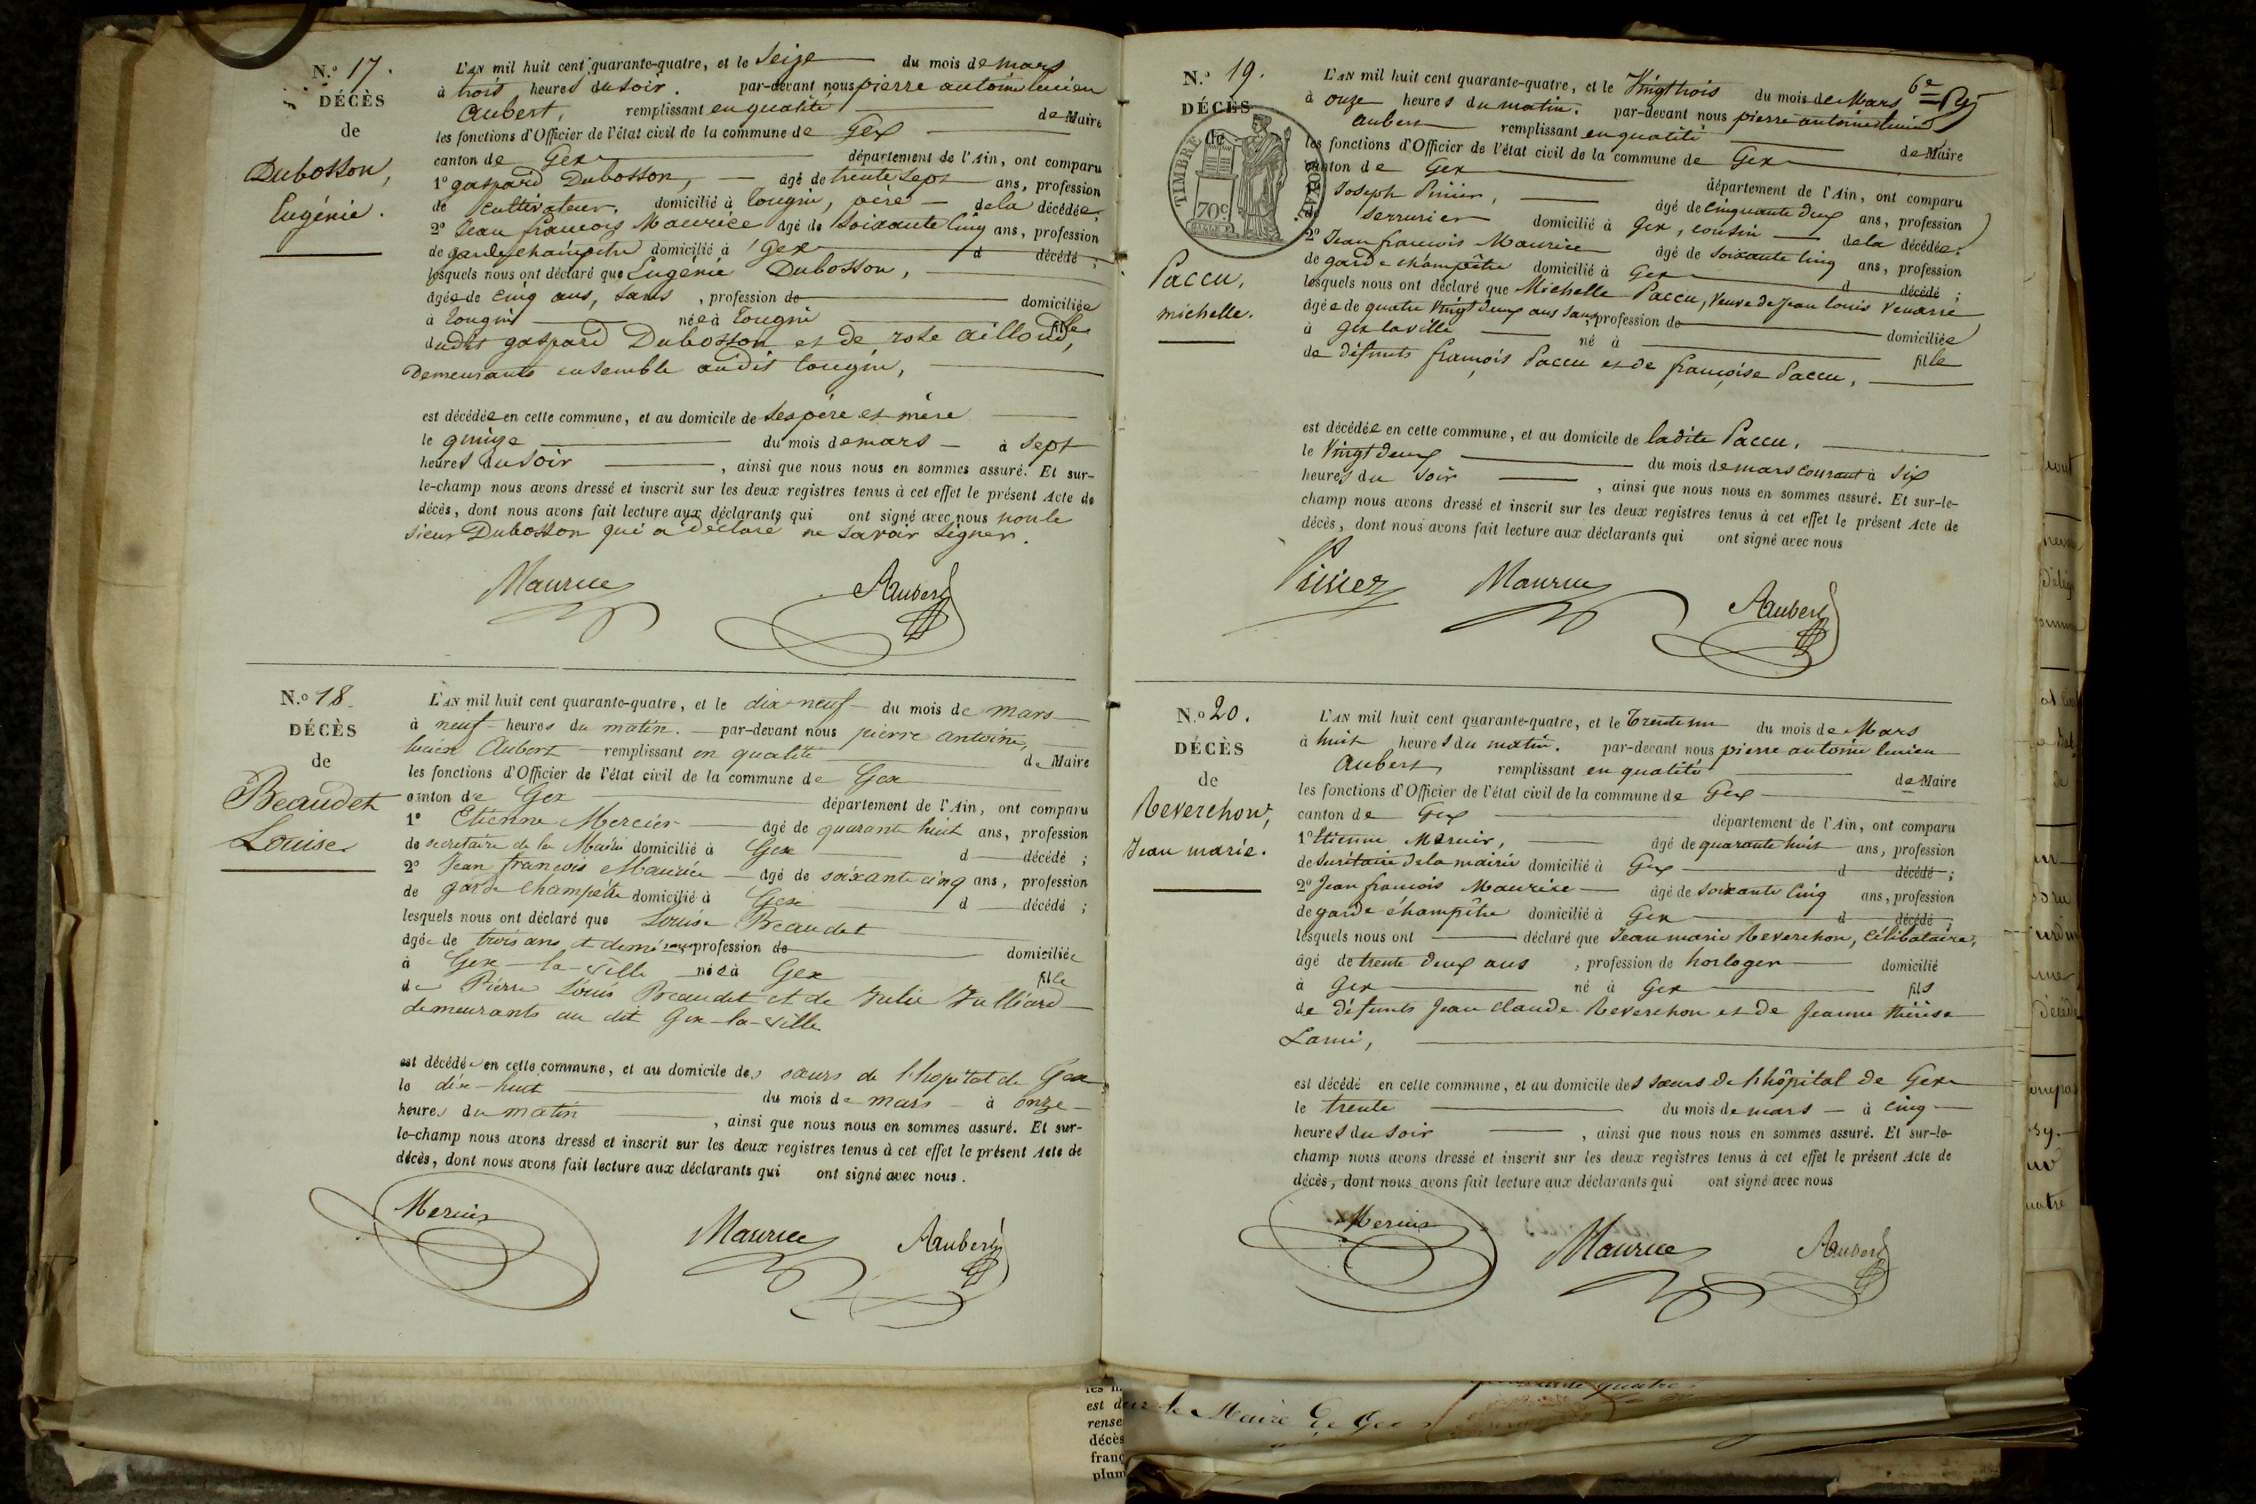 N.º 17.
DÉCÈS
de
Dubosson,
Eugénie.
L'AN mil huit cent quarante-quatre, et le seize du mois de mars
à trois heures du soir. par-devant nous pierre antoine lucien
Aubert, remplissant en qualité de Maire
les fonctions d'Officier de l'état civil de la commune de Gex
canton de Gex département de l'Ain, ont comparu
1º gaspard Dubosson, âgé de trente sept ans, profession
de cultivateur. domicilié à tougin, père de la décédée;
2º Jean françois Maurice âgé de soixante cinq ans, profession
de garde champêtre domicilié à Gex d décédé;
lesquels nous ont déclaré que Eugénie Dubosson,
âgée de cinq ans, sans, profession de domiciliée
à tougin née à tougin fille
dudit gaspard Dubosson et de rose aillod,
Demeurants ensemble audit tougin,
est décédée en cette commune, et au domicile de ses père et mère
le quinze du mois de mars à sept
heures du soir, ainsi que nous nous en sommes assuré. Et sur-
le-champ nous avons dressé et inscrit sur les deux registres tenus à cet effet le présent Acte de
décès, dont nous avons fait lecture aux déclarants qui ont signé avec nous non le
sieur Dubosson qui a déclaré ne savoir signer.
Maurice Aubert
N.º 18
DÉCÈS
de
Beaudet
Louise
L'AN mil huit cent quarante-quatre, et le dix-neuf du mois de mars
à neuf heures du matin. par-devant nous pierre antoine,
lucien Aubert remplissant en qualité de Maire
les fonctions d'Officier de l'état civil de la commune de Gex
canton de Gex département de l'Ain, ont comparu
1º Etienne Mercier âgé de quarante huit ans, profession
de secretaire de la Mairie domicilié à Gex d décédé;
2º Jean françois Maurice âgé de soixante cinq ans, profession
de garde champêtre domicilié à Gex d décédé;
lesquels nous ont déclaré que Louise Beaudet
âgée de trois ans et demi sans profession de domiciliée
à Gex-la-ville née à Gex fille
de Pierre Louis Beaudet et de Julie Julliard
demeurants au dit Gex-la-ville
est décédée en cette commune, et au domicile des sœurs de l'hopital de Gex
le dix-huit du mois de mars à onze
heures du matin, ainsi que nous nous en sommes assuré. Et sur-
le-champ nous avons dressé et inscrit sur les deux registres tenus à cet effet le présent Acte de
décès, dont nous avons fait lecture aux déclarants qui ont signé avec nous.
Mercier Maurice Aubert
N.º 19.
DÉCÈS
de
TIMBRE ROYAL.
70c
Paccu,
michelle.
6e
L'AN mil huit cent quarante-quatre, et le Vingt trois du mois de Mars
à onze heures du matin. par-devant nous pierre antoine lucien
Aubert remplissant en qualité de Maire
les fonctions d'Officier de l'état civil de la commune de Gex
canton de Gex département de l'Ain, ont comparu
1º Joseph Pinier, âgé de cinquante deux ans, profession
de serrurier domicilié à Gex, cousin de la décédée;
2º Jean françois Maurice âgé de soixante cinq ans, profession
de garde champêtre domicilié à Gex d décédé;
lesquels nous ont déclaré que Michelle Paccu, veuve de Jean louis
âgée de quatre vingt deux ans sans, profession de domiciliée
à gex la ville né à fille
de défunts françois Paccu et de françoise Paccu,
est décédée en cette commune, et au domicile de ladite Paccu,
le Vingt deux du mois de mars courant à six
heures du soir, ainsi que nous nous en sommes assuré. Et sur-le-
champ nous avons dressé et inscrit sur les deux registres tenus à cet effet le présent Acte de
décès, dont nous avons fait lecture aux déclarants qui ont signé avec nous
Maurice Aubert
N.º 20.
DÉCÈS
de
Reverchon,
Jean marie.
L'AN mil huit cent quarante-quatre, et le trente un du mois de Mars
à huit heures du matin. par-devant nous pierre antoine lucien
Aubert remplissant en qualité de Maire
les fonctions d'Officier de l'état civil de la commune de Gex
canton de Gex département de l'Ain, ont comparu
1º Etienne Mercier, âgé de quarante huit ans, profession
de secrétaire de la mairie domicilié à Gex d décédé;
2º Jean francois Maurice âgé de soixante cinq ans, profession
de garde champêtre domicilié à Gex d décédé;
lesquels nous ont déclaré que Jean marie Reverchon, célibataire,
âgé de trente deux ans, profession de horloger domicilié
à Gex né à Gex fils
de défunts Jean claude Reverchon et de Jeanne thérèse
Lami,
est décédé en cette commune, et au domicile des sœurs de l'hôpital de Gex
le trente du mois de mars à cinq
heures du soir, ainsi que nous nous en sommes assuré. Et sur-le-
champ nous avons dressé et inscrit sur les deux registres tenus à cet effet le présent Acte de
décès, dont nous avons fait lecture aux déclarants qui ont signé avec nous
Mercier Maurice Aubert
le Maire de Gex